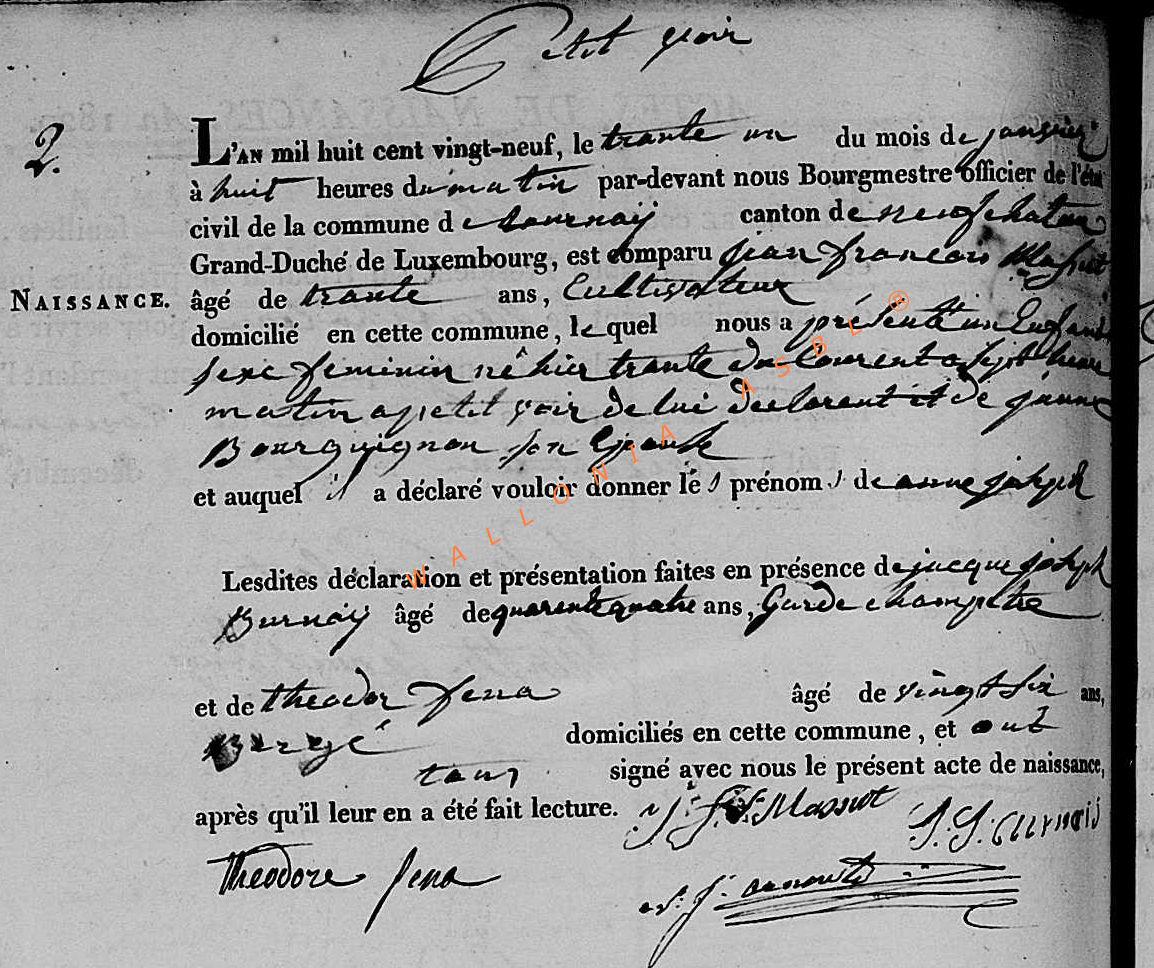 Petit voir
2.
L'AN mil huit cent vingt-neuf, le trante un du mois de janvier
à huit heures du matin par-devant nous Bourgmestre officier de l'état
civil de la commune de tournay canton de neufchatau
Grand-Duché de Luxembourg, est comparu jean francois Massut
NAISSANCE.
âgé de trante ans, Cultivateur
domicilié en cette commune, lequel nous a présenté un Enfant
sexe feminin né hier trante du Courent a sept heure
matin a petit voir de lui declarent et de jeanne
Bourguignon son Epouse
et auquel il a déclaré vouloir donner les prénoms de anne joseph
Lesdites déclaration et présentation faites en présence de jacque joseph
Burnay âgé de quarente quatre ans, Garde champetre
et de theodor fena âgé de vingt six ans,
Bergé domiciliés en cette commune, et ont
tous signé avec nous le présent acte de naissance,
après qu'il leur en a été fait lecture. J. F. Massut
Theodore fena
WALLONIA ASBL ®